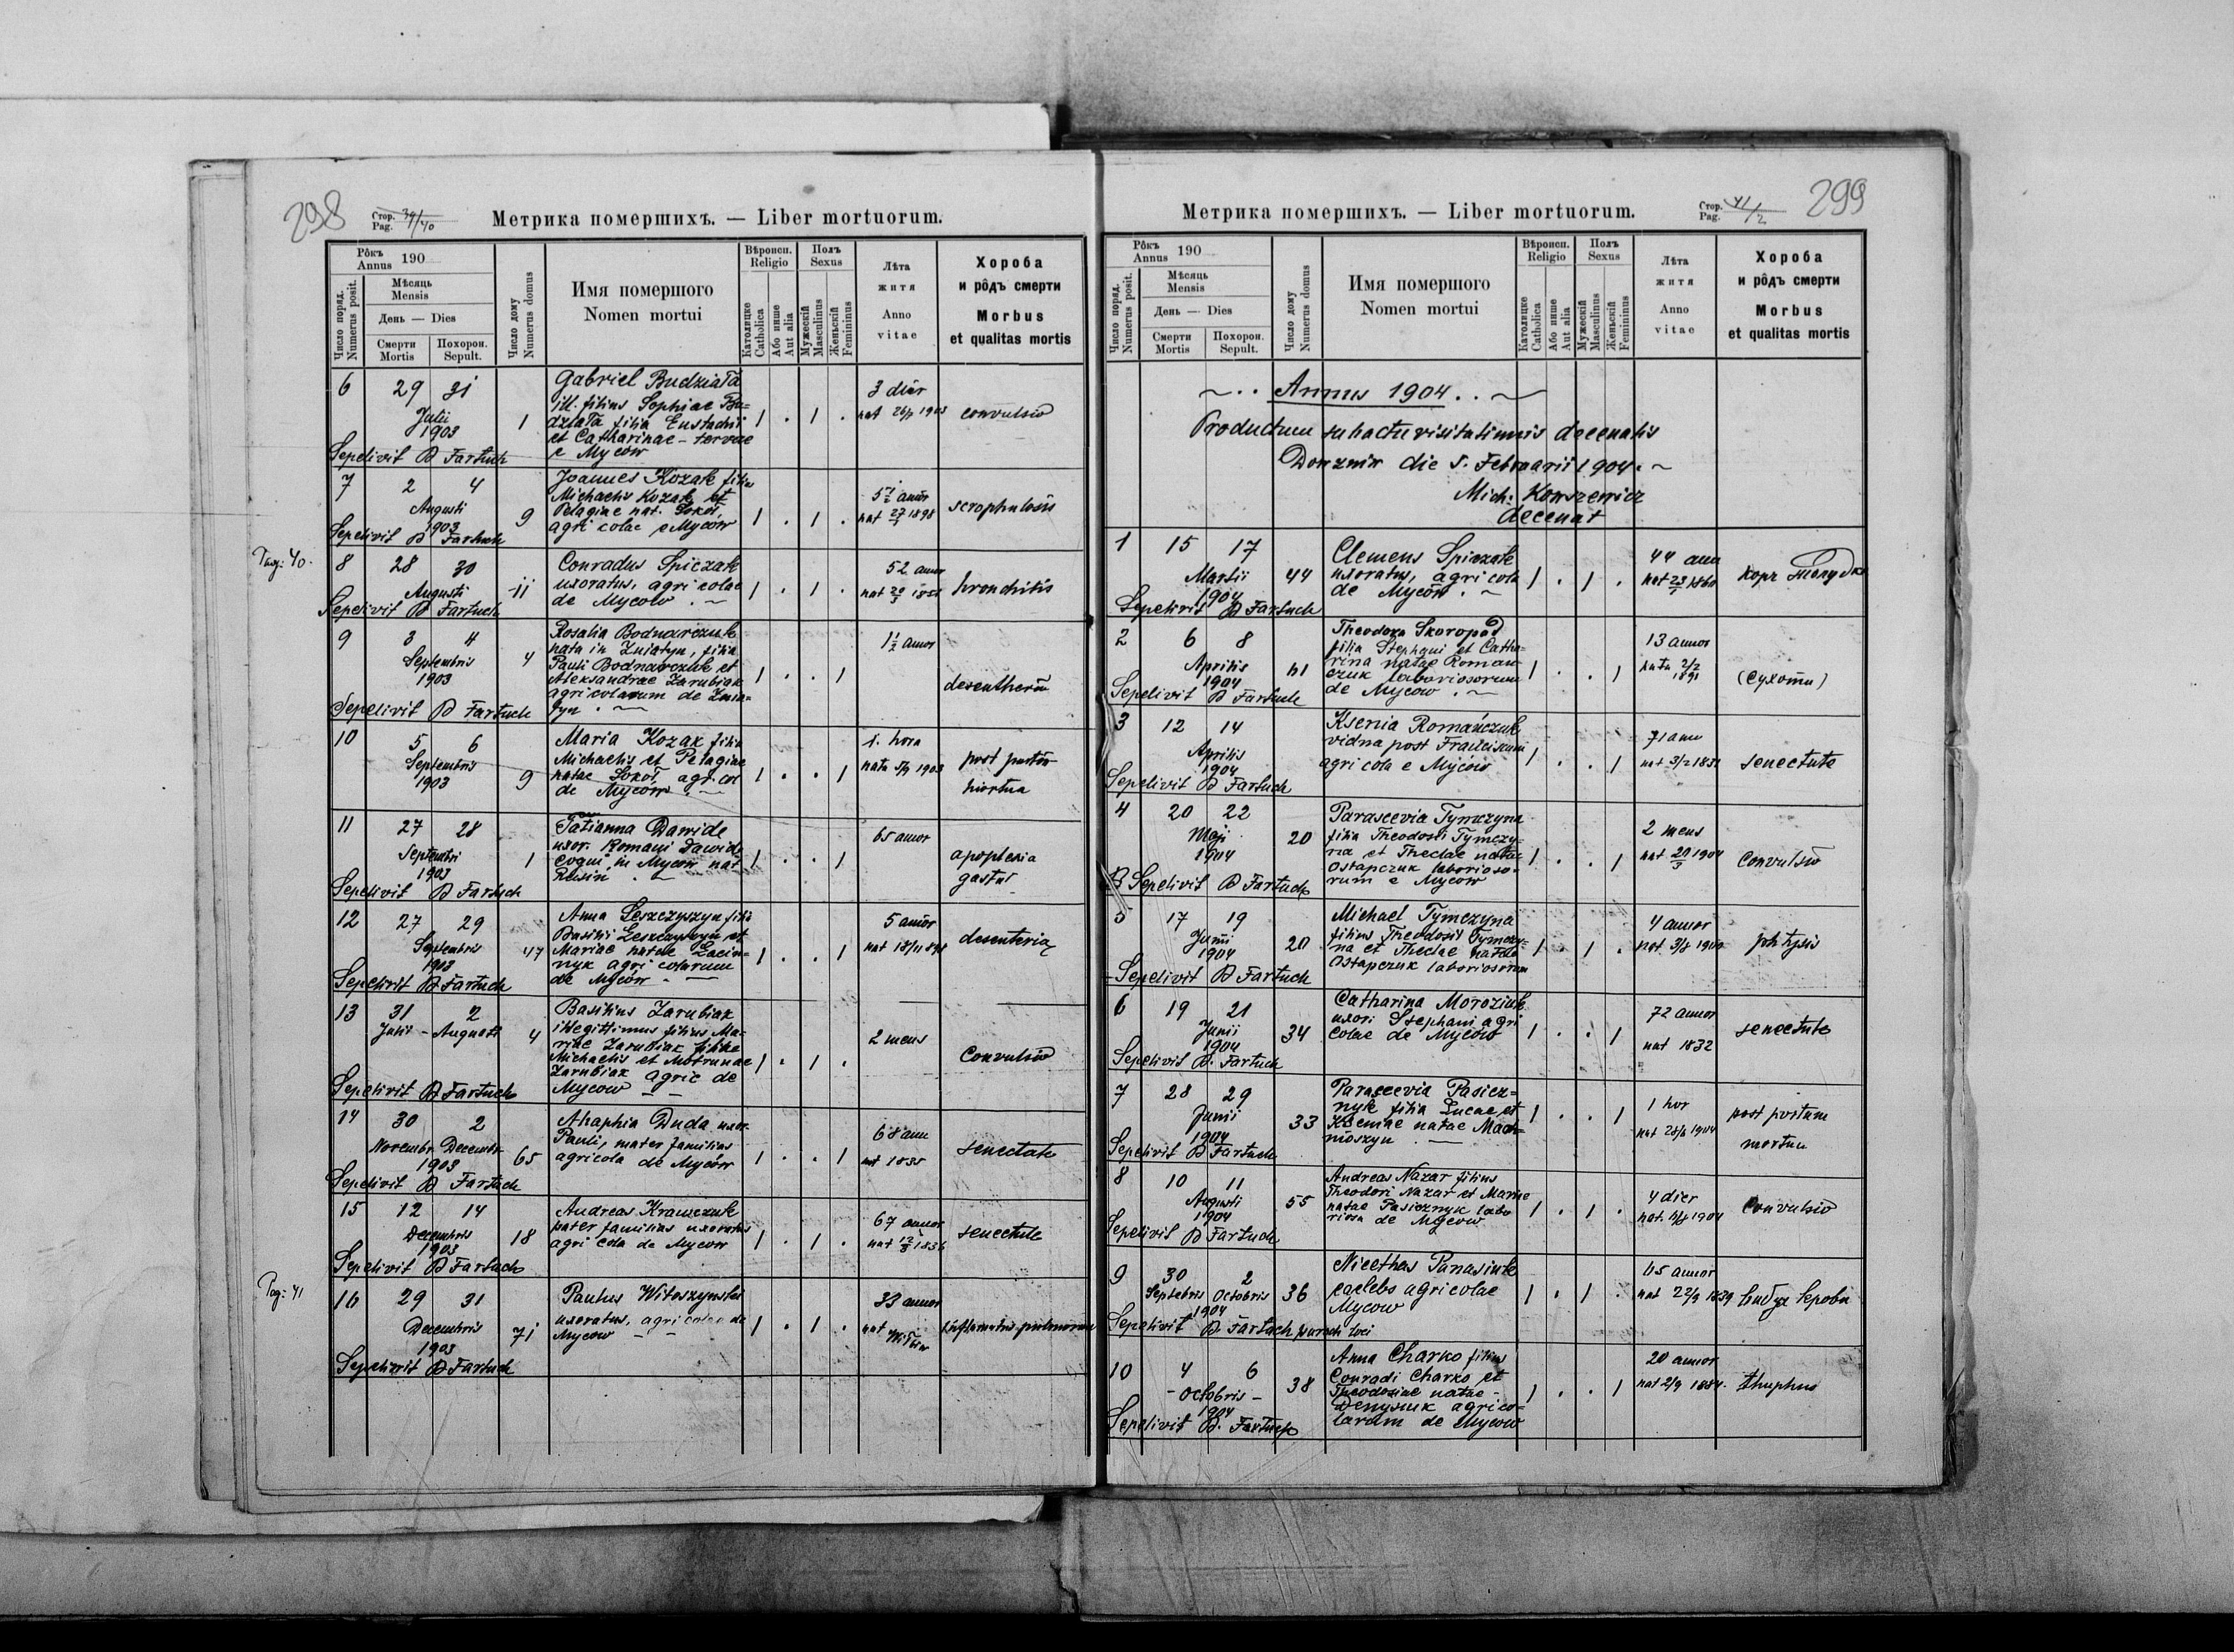 298
Стор. Pag. 39/40
Метрика помершихъ. — Liber mortuorum.
Рôкъ Annus 190
Вѣроисп. Religio
Полъ Sexus
Число поряд. Numerus posit.
Мѣсяць Mensis
День — Dies
Смерти Mortis
Похорон. Sepult.
Число дому Numerus domus
Имя помершого
Nomen mortui
Католицке Catholica
Або инше Aut alia
Мужескій Masculinus
Женьскій Femininus
Лѣта житя
Anno vitae
Хороба
и рôдъ смерти
Morbus
et qualitas mortis
6 29 31 Julii 1903 1
Gabriel Budziała
ill. filius Sophiae Bu-
działa filia Eustachii
et Catharinae - servae
e Myców
1 . 1 .
3 dier
nat 26/7 1903
convulsio
Sepelivit B Fartuch
7 2 4 Augusti 1903 9
Joannes Kozak filius
Michaelis Kozak et
Pelagiae nat. Sokoł,
agricolae e Myców
1 . 1 .
5½ annor
nat 27/1 1898
scrophulosis
Sepelivit B Fartuch
Pag: 40.
8 28 30 Augusti 11
Conradus Spiczak
uxoratus, agricolae
de Mycow . ~
1 . 1 .
52 annor
bronchitis
Sepelivit B Fartuch
9 3 4 Septembris 1903 4
Rosalia Bodnarczuk
nata in Zniatyn, filia
Pauli Bodnarczuk et
Aleksandrae Zarubiak
agricolarum de Znia-
tyn . ~
1 . . 1
1½ annor
Sepelivit B Fartuch
10 5 6 Septembris 1903 9
Maria Kozak filia
Michaelis et Pelagiae
natae Sokoł, agricol
de Myców . ~
1 . . 1
1. hora
nata 5/9 1903
post partum
mortua
11 27 28 Septembri 1903 1
Tatianna Dawide
uxor. Romani Dawid
coqui in Mycow nat
1 . . 1
65 annor
apoplexia
Sepelivit B Fartuch
12 27 29 Septembris 1903 47
Anna Leszczyszyn filia
Basilii Leszczyszyn et
Mariae natae Lacin-
nyk agricolarum
de Myców . —
1 . . 1
5 annor
desenteria
Sepelivit B Fartuch
13 31 2 Julii - Augusti 4
Basilius Zarubiak
illegittimus filius Ma-
riae Zarubiak filiae
Michaelis et Motrunae
Zarubiak agric de
Mycow — —
1 . 1 .
2 mens
Convulsio
Sepelivit B Fartuch
14 30 2 Novembr. Decembr. 1903 65
Ahaphia Duda uxor
Pauli, mater familias
agricola de Myców
1 . . 1
68 ann
nat 1835
senectute
Sepelivit B Fartuch
15 12 14 Decembris 1903 18
Andreas Krawczuk
pater familias uxoratus
agricola de Mycow
1 . 1 .
67 annor
nat 12/8 1836
senectute
Sepelivit B Fartuch
Pag: 41
16 29 31 Decembris 1903 71
Paulus Witoszynski
uxoratus, agricolae de
Mycow — —
1 . 1 .
33 annor
nat
pulmonum
Sepelivit B Fartuch
299
Стор. Pag. 41/2
Метрика помершихъ. — Liber mortuorum.
Рôкъ Annus 190
Вѣроисп. Religio
Полъ Sexus
Число поряд. Numerus posit.
Мѣсяць Mensis
День — Dies
Смерти Mortis
Похорон. Sepult.
Число дому Numerus domus
Имя помершого
Nomen mortui
Католицке Catholica
Або инше Aut alia
Мужескій Masculinus
Женьскій Femininus
Лѣта житя
Anno vitae
Хороба
и рôдъ смерти
Morbus
et qualitas mortis
~ . . Annus 1904 . . ~
Productum in actu visitationis decenalis
die 5. Februarii 1904. ~
Mich: Konszewicz
decenat
1 15 17 Martii 1904 44
Clemens Spiczak
uxoratus, agricola
de Myców . ~
1 . 1 .
44 ann
Sepelivit B Fartuch
2 6 8 Aprilis 1904 61
Theodora Skoropad
filia Stephani et Catha-
rina natae Roman-
czuk laboriosorum
de Mycow . ~
1 . . 1
13 annor
nata 2/2 1891
(Сухоты)
Sepelivit B Fartuch
3 12 14 Aprilis 1904
Ksenia Romańczuk
vidua post Franciscum
agricola e Myców
1 . . 1
71 ann
senectute
Sepelivit B Fartuch
4 20 22 Maji 1904 20
Parascevia Tymczyna
filia Theodosii Tymczy-
na et Theclae natae
Ostapczuk laborioso-
rum e Mycow
1 . . 1
2 mens
Convulsio
Sepelivit B Fartuch
5 17 19 Junii 1904 20
Michael Tymczyna
filius Theodosii Tymczy-
na et Theclae natae
Ostapczuk laboriosorum
1 . 1 .
4 annor
phtysis
Sepelivit B Fartuch
6 19 21 Junii 1904 34
Catharina Moroziuk
uxori Stephani agri
colae de Mycow
1 . . 1
72 annor
nat 1832
senectute
Sepelivit B. Fartuch
7 28 29 Junii 1904 33
Parascevia Pasicz-
nyk filia Lucae et
Kseniae natae Mach-
noszyn . —
1 . . 1
1 hor
nat 28/6 1904
post partum
mortua
Sepelivit B Fartuch
8 10 11 Augusti 1904 55
Andreas Nazar filius
Theodori Nazar et Mariae
natae Pasicznyk labo
riosa de Mycow
1 . 1 .
4 dier
nat. 6/8 1904
Convulsio
Sepelivit B Fartuch
9 30 2 Septebris Octobris 1904 36
Nicethas Panasiuk
caelebs agricolae
Mycow
1 . 1 .
65 annor
nat 22/9 1839
Sepelivit B. Fartuch paroch loci
10 4 6 - Octobris - 1904 38
Anna Charko filius
Conradi Charko et
Theodosiae natae -
Denysiuk agrico-
larum de Mycow
1 . . 1
20 annor
nat 2/9 1884.
thyphus
Sepelivit B. Fartuch